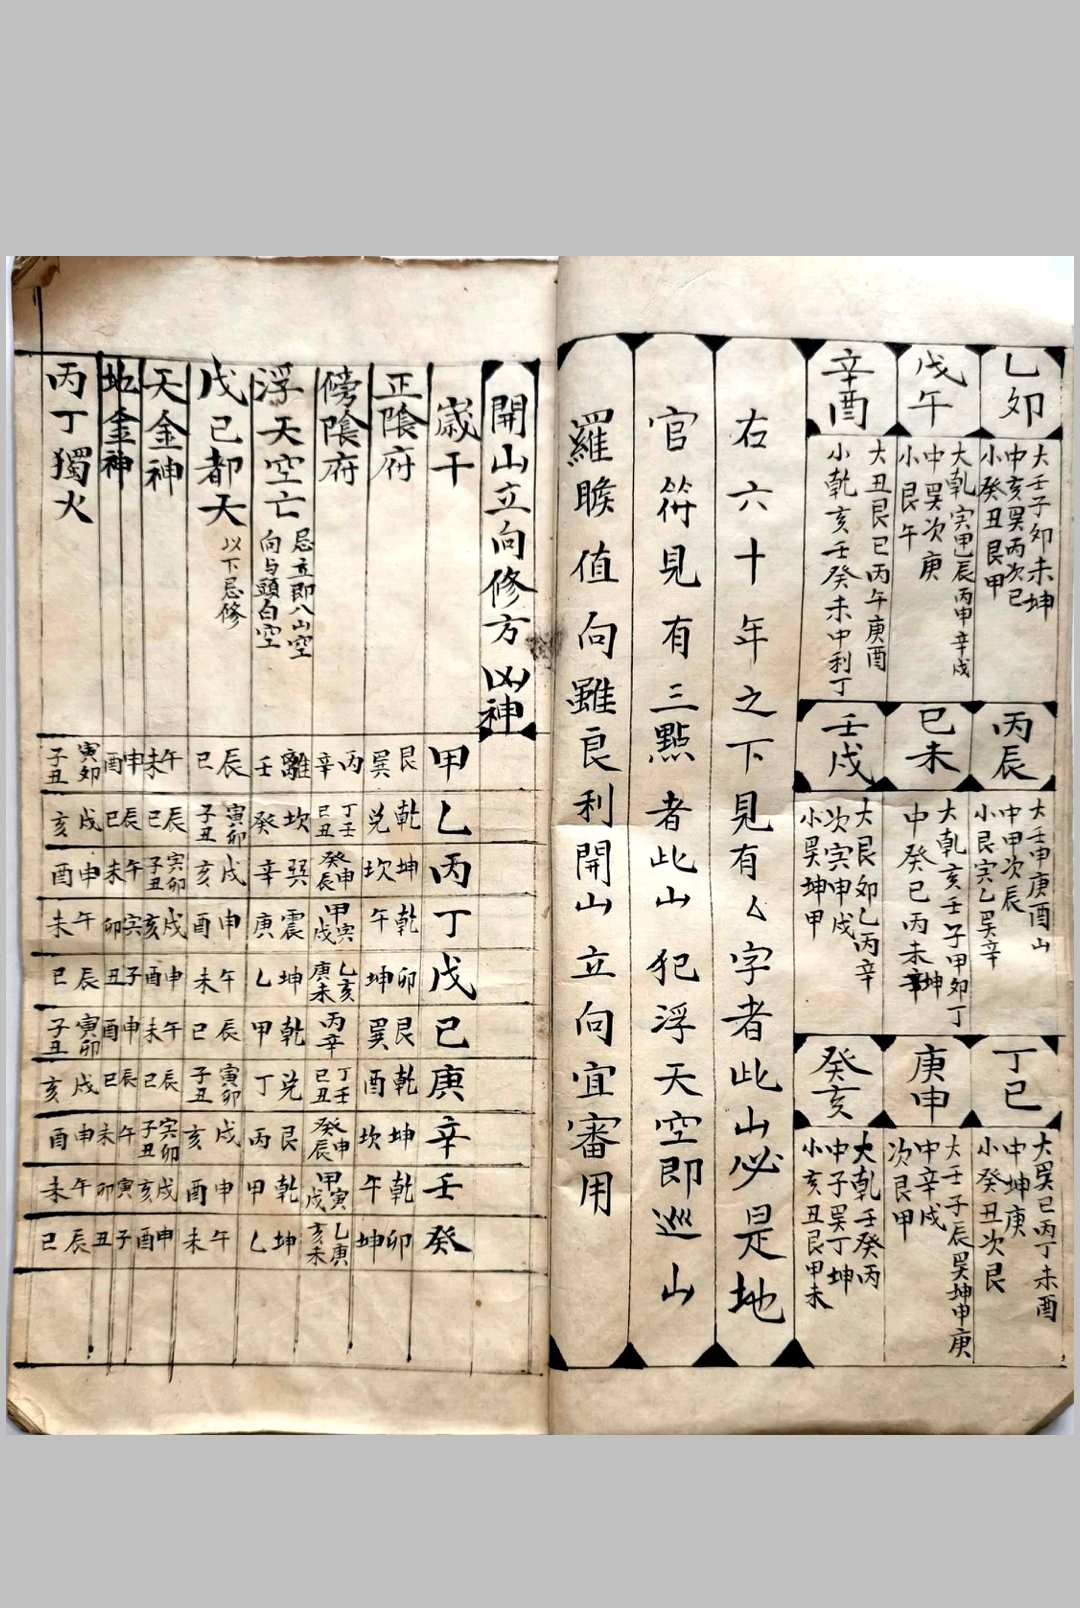 乙卯
大壬子卯未坤
中亥巽丙次巳
小癸丑艮甲
戊午
大乾寅甲辰丙申辛戌
中巽次庚
小艮午
辛酉
大丑艮巳丙午庚酉
小乾亥壬癸未中利丁
丙辰
大壬申庚酉山
中甲次辰
小艮寅乙巽辛
己未
大乾亥壬子甲卯丁
中癸巳丙未坤
壬戌
大艮卯乙丙辛
次寅申戌
小巽坤甲
丁巳
大巽巳丙丁未酉
中坤庚
小癸丑次艮
庚申
大壬子辰巽坤申庚
中辛戌
次艮甲
癸亥
大乾壬癸丙
中子巽丁坤
小亥丑艮甲未
右六十年之下見有么字者此山必是地
官符見有三點者此山犯浮天空即巡山
羅睺值向雖良利開山立向宜審用
開山立向修方凶神
歲干 甲 乙 丙 丁 戊 己 庚 辛 壬 癸
正陰府 艮巽 乾兌 坤坎 乾午 卯坤 艮巽 乾酉 坤坎 乾午 卯坤
傍陰府 丙辛 丁壬巳丑 癸申辰 甲寅戌 乙亥庚未 丙辛 丁壬巳丑 癸申辰 甲寅戌 乙庚亥未
浮天空亡 忌立即八山空向与頭白空 離壬 坎癸 巽辛 震庚 坤乙 乾甲 兌丁 艮丙 乾甲 坤乙
戊己都天 以下忌修 辰巳 寅卯子丑 戌亥 申酉 午未 辰巳 寅卯子丑 戌亥 申酉 午未
天金神 午未 辰巳 寅卯子丑 戌亥 申酉 午未 辰巳 寅卯子丑 戌亥 申酉
地金神 申酉 辰巳 午未 寅卯 子丑 申酉 辰巳 午未 寅卯 子丑
丙丁獨火 寅卯子丑 戌亥 申酉 午未 辰巳 寅卯子丑 戌亥 申酉 午未 辰巳